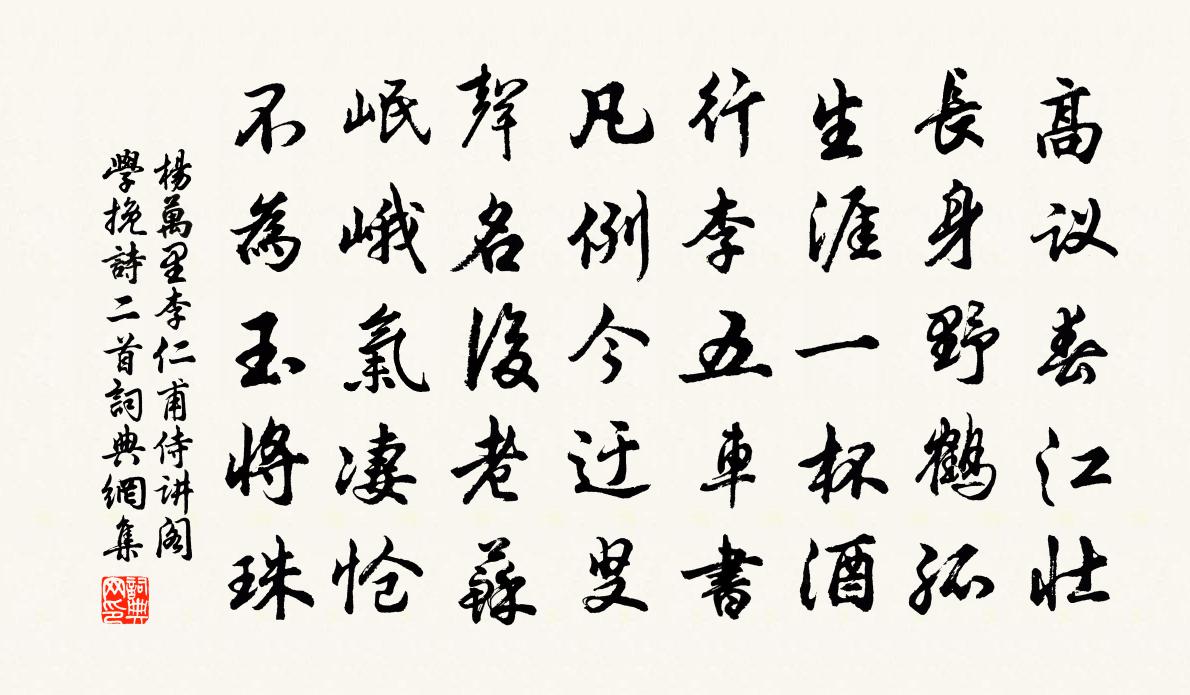 高议春江壮
長身野鹤孤
生涯一杯酒
行李五車書
凡例今迂叟
聲名後老蘇
岷峨氣凄怆
不為玉將珠
楊萬里李仁甫侍讲阁
學挽詩二首詞典網集
詞典
网印